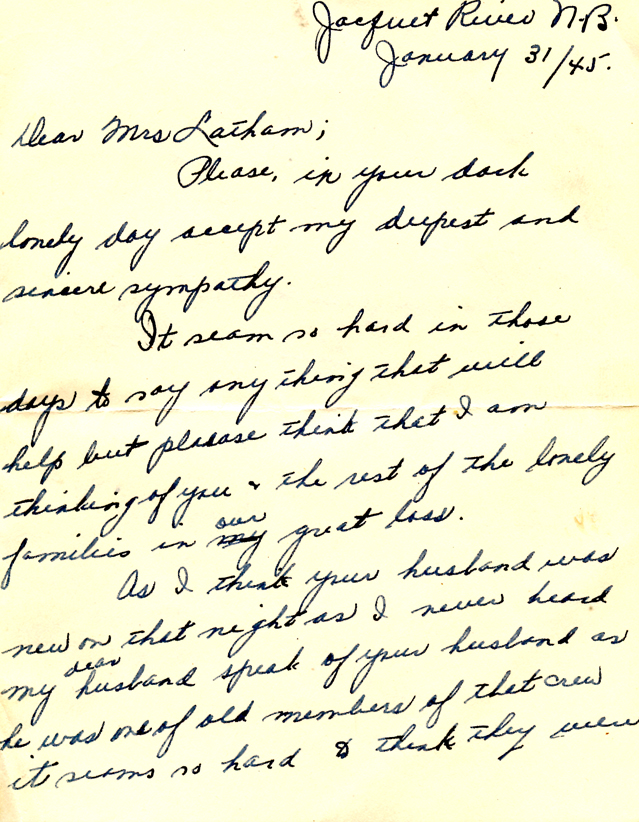 Jacquet River N.B.
January 31/45.
Dear Mrs Latham;
Please, in your dark
lonely day accept my deepest and
sincere sympathy.
It seam so hard in those
days to say any thing that will
help but plasase think that I am
thinking of you & the rest of the lonely
families in my our great loss.
As I think your husband was
new on that night as I never heard
my dear husband speak of your husband as
he was one of old members of that crew
it seams so hard to think they were